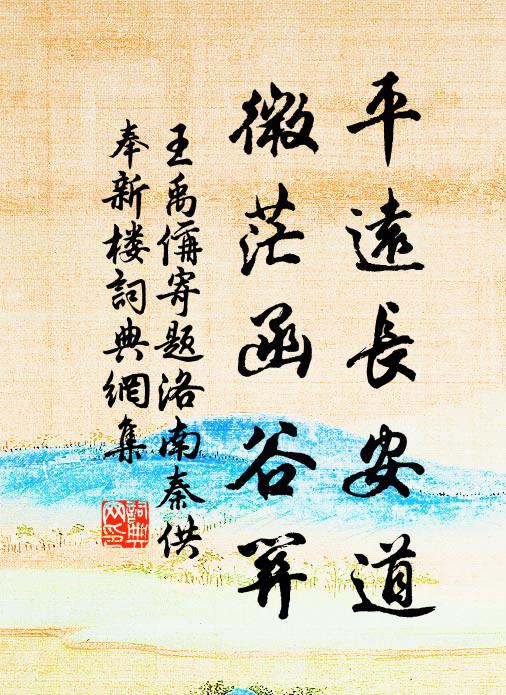 平遠長安道
微茫函谷關
王禹偁寄题洛南秦供
奉新楼詞典網集
詞典
网印